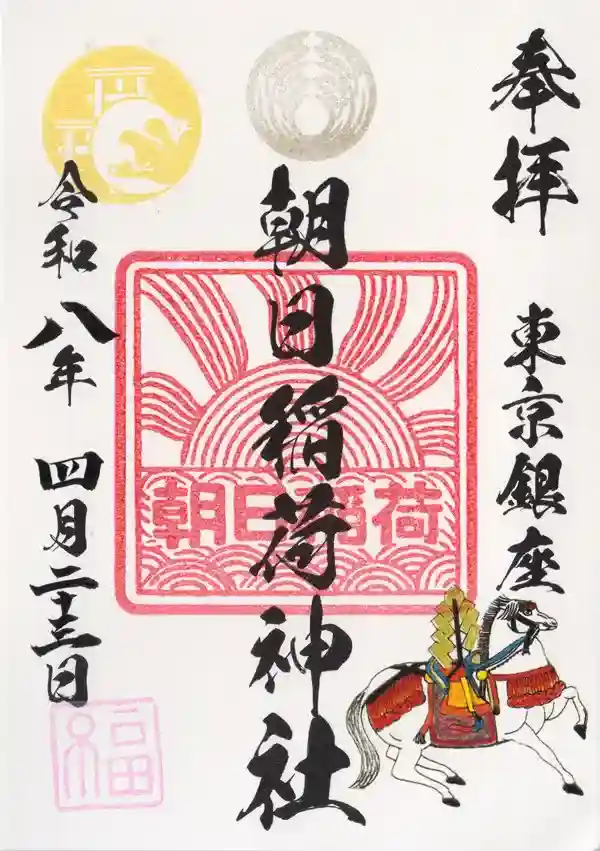 奉拝
東京銀座
朝日稲荷神社
朝日稲荷
令和八年 四月二十三日
福